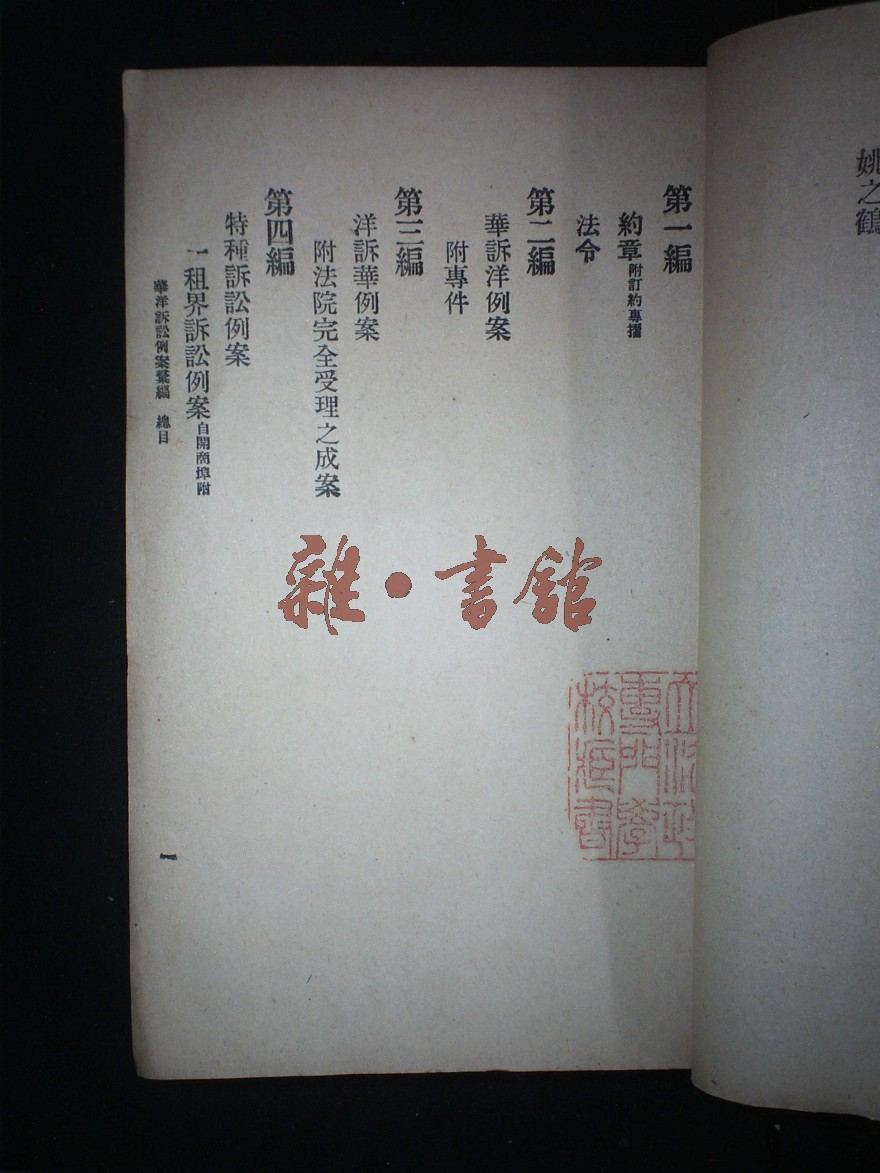 姚之鶴
第一編
約章附訂約專摺
法令
第二編
華訴洋例案
附專件
第三編
洋訴華例案
附法院完全受理之成案
第四編
特種訴訟例案
一租界訴訟例案自開商埠附
華洋訴訟例案彙編 總目
一
雜·書館
立法政
專門學
校藏書